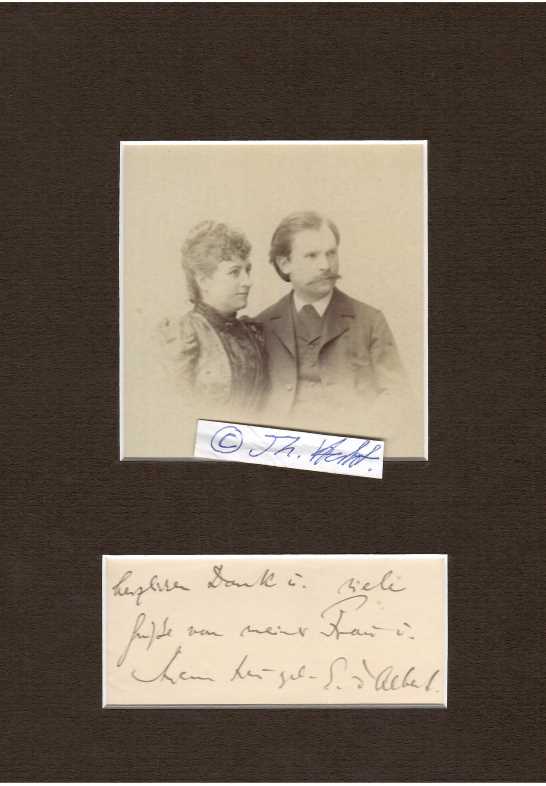 © Th.
herzlichen Dank u. viele
Grüße von meiner Frau u.
E. d'Albert.